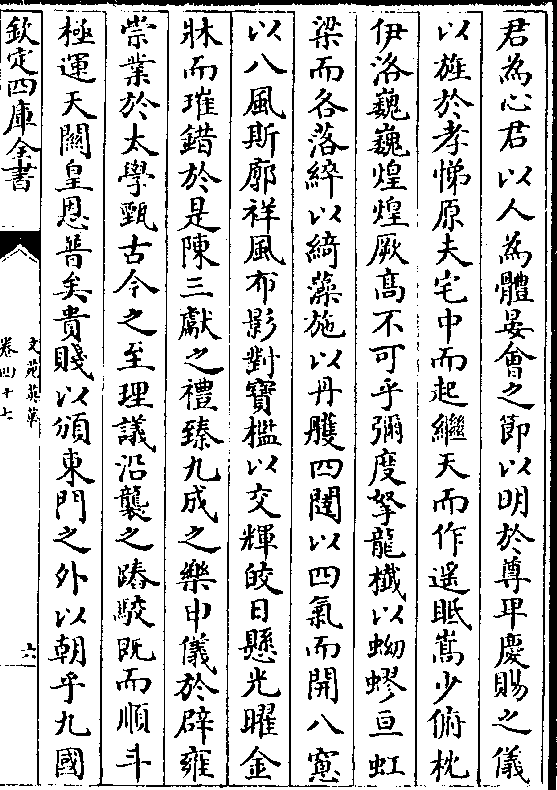 君為心君以人為體晏會之節以明於尊卑慶賜之儀
以旌於孝悌原夫宅中而起繼天而作遥眂嵩少俯枕
伊洛巍巍煌煌厥髙不可乎彌度拏龍檻以蚴蟉亘虹
梁而各落綷以綺藻施以丹雘四闥以四氣而開八窻
以八風斯廓祥風布影對寳檻以交輝皎日懸光曜金
牀而璀錯於是陳三獻之禮臻九成之樂申儀於辟雍
崇業於太學甄古今之至理議沿襲之踳駮既而順斗
極運天闗皇恩普矣貴賤以頒東門之外以朝乎九國
欽定四庫全書
文苑英華
卷四十七
六